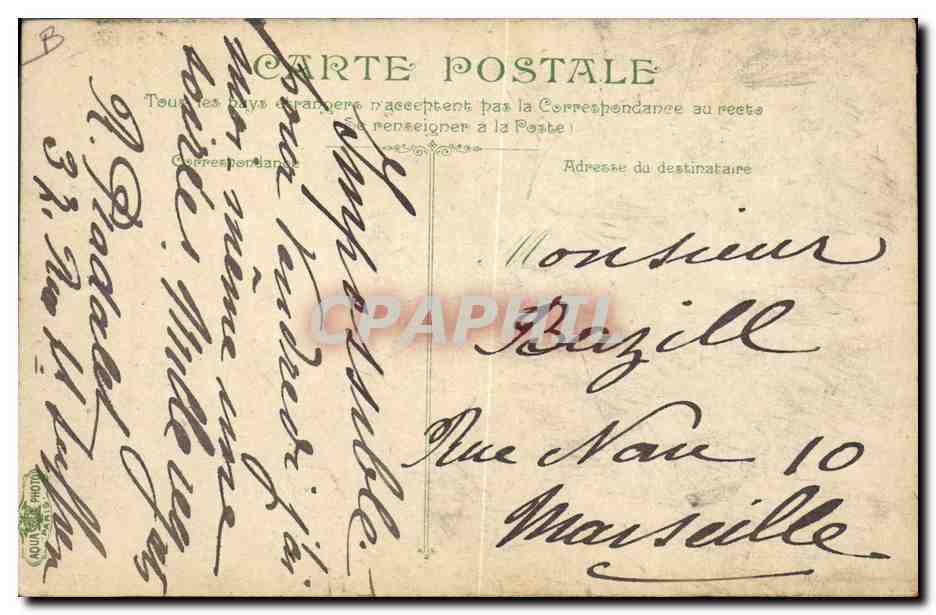 B
CARTE POSTALE
Tous les pays étrangers n'acceptent pas la Correspondance au recto
(Se renseigner à la Poste)
Correspondance
Adresse du destinataire
Impossible.
pour Vendredi j'ai
moi-même une
soirée. Mille
R.
32. Rue St
Monsieur
Bazill
Rue Nau 10
Marseille
CPAPHIL
AQUA PHOTO
PARIS